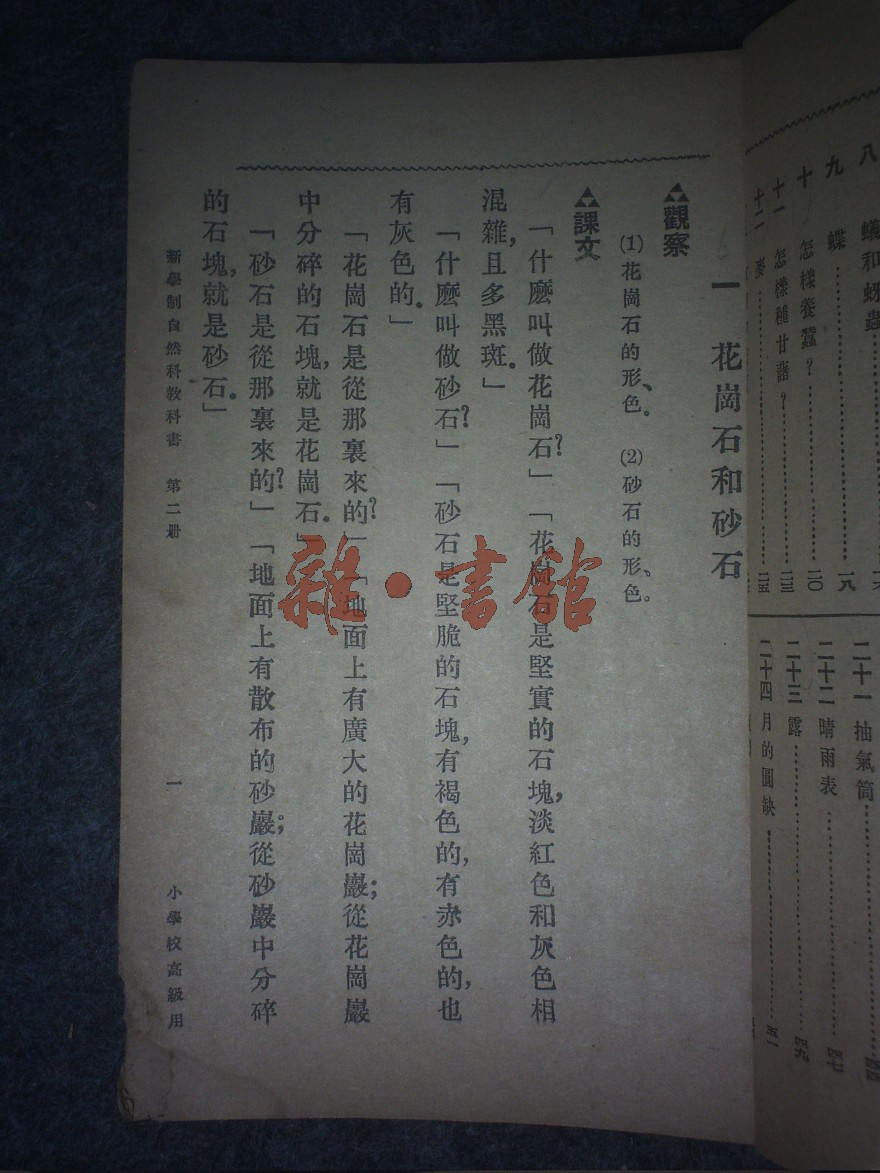 八　蟻和蚜蟲
九　蝶……一八
十　怎樣養蠶？……二〇
十一　怎樣種甘藷？……二三
十二　麥……二五
二十一　抽氣筒
二十二　晴雨表……四七
二十三　露……四九
二十四　月的圓缺……五一
一　花崗石和砂石
觀察
(1)花崗石的形、色。　(2)砂石的形、色。
課文
「什麽叫做花崗石？」「花崗石是堅實的石塊，淡紅色和灰色相
混雜，且多黑斑。」
「什麽叫做砂石？」「砂石是堅脆的石塊，有褐色的，有赤色的，也
有灰色的。」
「花崗石是從那裏來的？」「地面上有廣大的花崗巖；從花崗巖
中分碎的石塊，就是花崗石。」
「砂石是從那裏來的？」「地面上有散布的砂巖；從砂巖中分碎
的石塊，就是砂石。」
新學制自然科教科書　第二册　一　小學校高級用
雜·書館